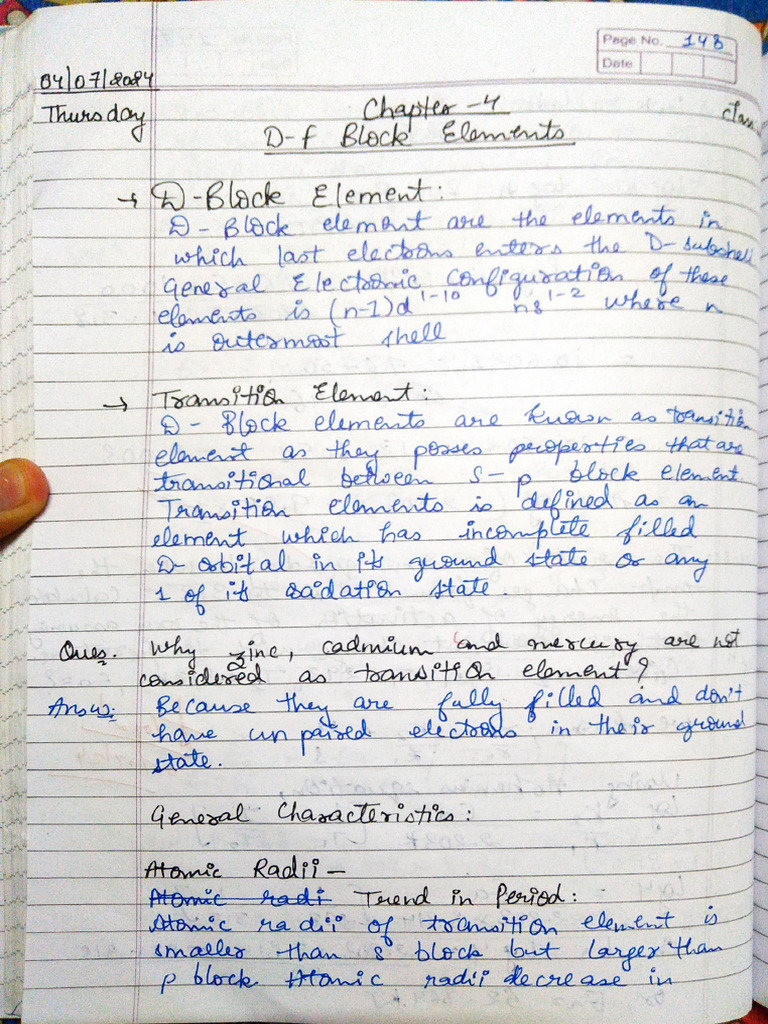 Page No. 148
Date
04/07/2024
Thursday
Chapter - 4
D-f Block Elements
→ D-Block Element:
D - Block element are the elements in
which last electrons enters the D-subshell
General Electronic Configuration of these
elements is (n-1)d¹⁻¹⁰ ns¹⁻² where n
is outermost shell
→ Transition Element:
D - Block elements are known as transition
element as they posses properties that are
transitional between S-p block element.
Transition elements is defined as an
element which has incomplete filled
D-orbital in its ground state or any
1 of its oxidation state.
Ques. Why zinc, cadmium and mercury are not
considered as transition element?
Answ: Because they are fully filled and don't
have unpaired electrons in their ground
state.
General Characteristics:
Atomic Radii -
Atomic radi Trend in Period:
Atomic radii of transition element is
smaller than s block but larger than
p block Atomic radii decrease in